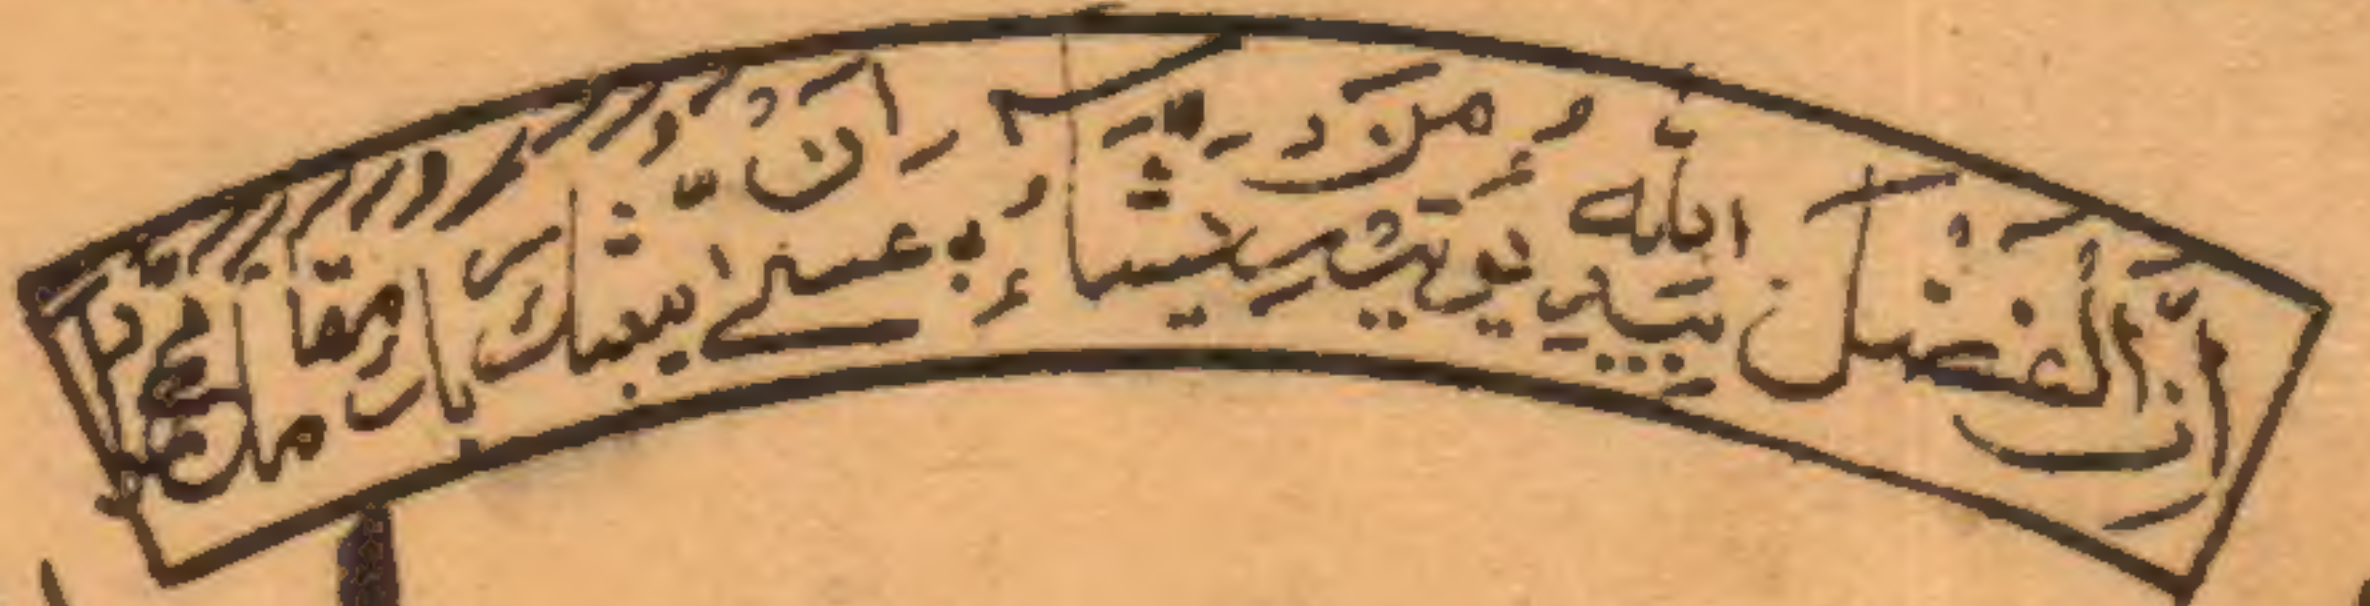 اِنَّ الْفَضْلَ بِيَدِ اللّٰهِ يُؤْتِيْهِ مَنْ يَّشَآءُ عَسٰٓے اَنْ يَّبْعَثَكَ رَبُّكَ مَقَامًا مَّحْمُوْدًا